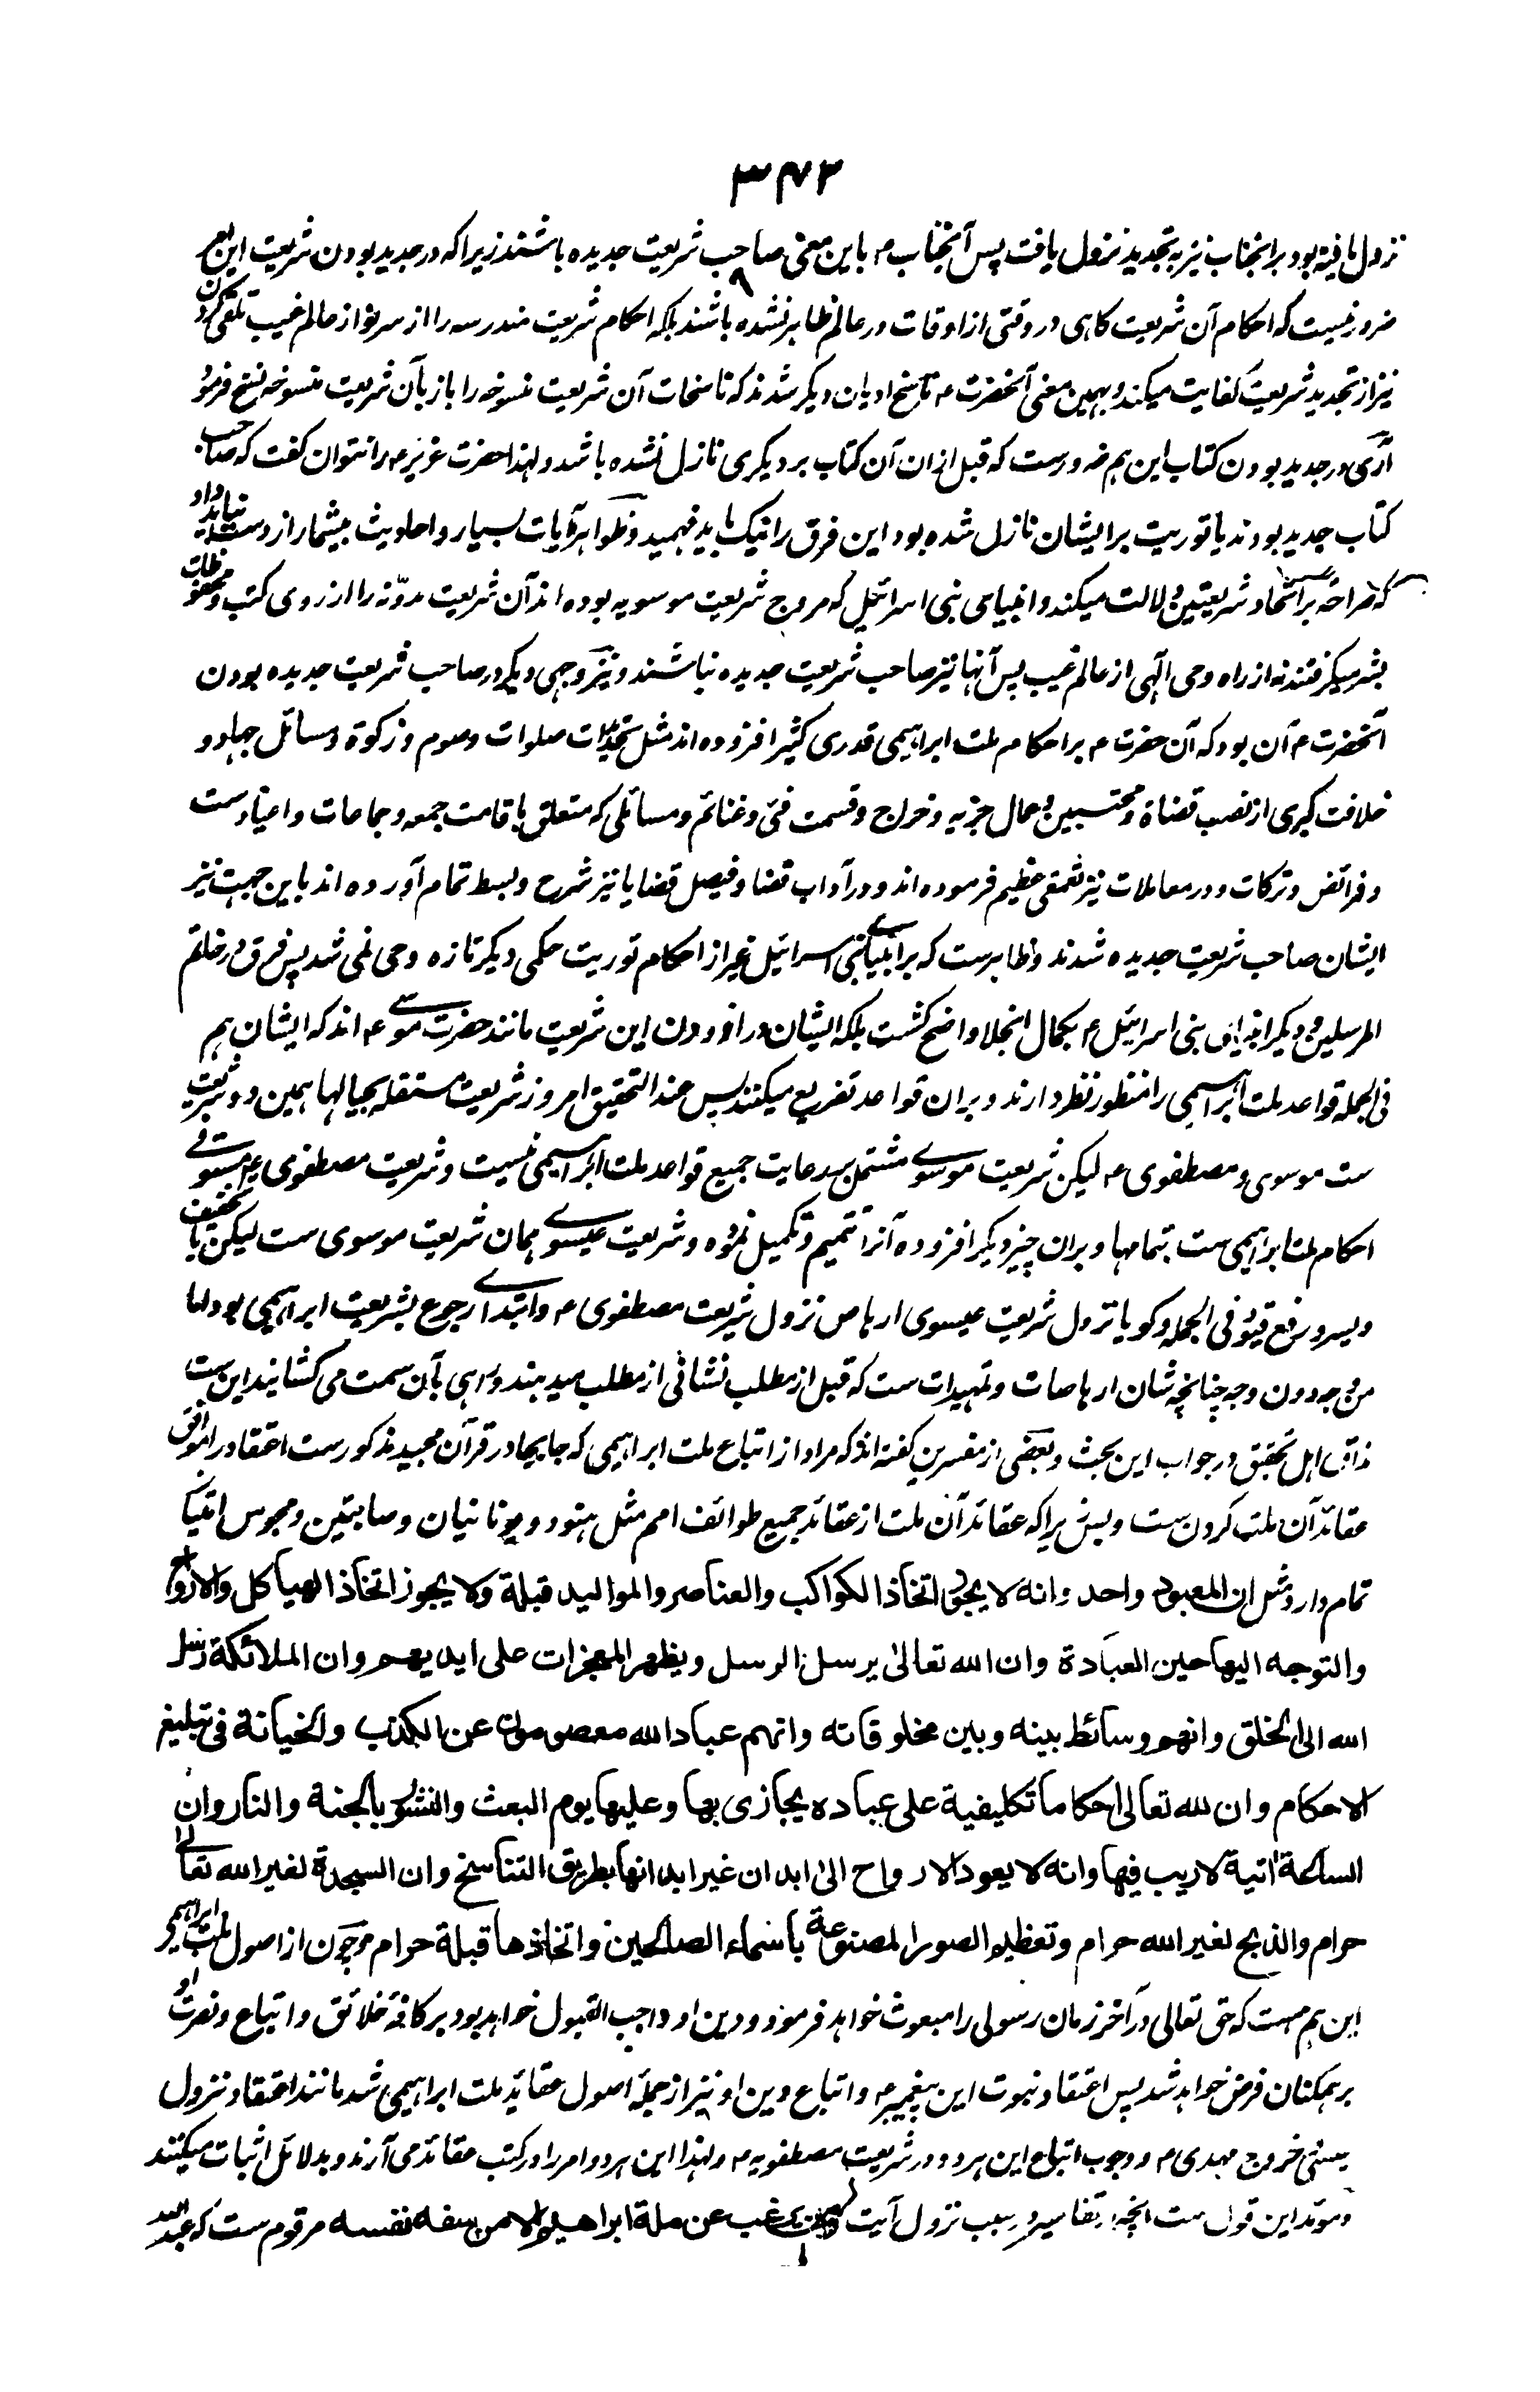 ۳۷۳
نزول یافته بود بر آنجناب نیز به تجدید نزول یافت پس آنجناب ۴ باین معنی صاحب شریعت جدیده باشند زیرا که در جدید بودن شریعت این امر
ضرور نیست که احکام آن شریعت کاهی در وقتی از اوقات در عالم ظاهر نشده باشند بلکه احکام شریعت مندرسه را از سر نو از عالم غیب تلقی کردن
نیز از تجدید شریعت کفایت میکند و بهمین معنی آنحضرت ۴ ناسخ ادیان دیکر شدند که ناسخات آن شریعت منسوخه را باز بآن شریعت منسوخه نسخ فرمود
آری در جدید بودن کتاب این هم ضرورست که قبل ازان آن کتاب بر دیکری نازل نشده باشد و لهذا حضرت عزیر ۴ را نتوان کفت که صاحب
کتاب جدید بودند یا توریت بر ایشان نازل شده بود این فرق را نیک باید فهمید و ظواهر آیات بسیار و احادیث بیشمار از دست نباید داد
که صراحة بر اتحاد شریعتین دلالت میکند و انبیای بنی اسرائیل که مروج شریعت موسویه بوده اند آن شریعت مدوّنه را از روی کتب و محفوظات
بشر میکرفتند نه از راه وحی الهی از عالم غیب پس آنها نیز صاحب شریعت جدیده نباشند و نیز وجهی دیکر در صاحب شریعت جدیده بودن
آنحضرت ۴ آن بود که آن حضرت ۴ بر احکام ملت ابراهیمی قدری کثیر افزوده اند مثل تحدیدات صلوات و صوم و زکوة و مسائل جهاد و
خلافت کبری از نصب قضاة و محتسبین و عمال جزیه و خراج و قسمت فئ و غنائم و مسائلی که متعلق باقامت جمعه و جماعات و اعیادست
و فرائض و ترکات و در معاملات نیز تعمقی عظیم فرموده اند و در آداب قضا و فیصل قضایا نیز شرح و بسط تمام آورده اند باین جهت نیز
ایشان صاحب شریعت جدیده شدند و ظاهرست که بر انبیای بنی اسرائیل غیر از احکام توریت حکمی دیکر تازه وحی نمی شد پس فرق در خاتم
المرسلین و دیکر انبیای بنی اسرائیل ۴ بکمال انجلا واضح کشت بلکه ایشان در افزودن این شریعت مانند حضرت موسی ۴ اند که ایشان هم
فی الجمله قواعد ملت ابراهیمی را منظور نظر دارند و بران قواعد تفریع میکنند پس عند التحقیق امروز شریعت مستقله بحیالها همین دو شریعت
ست موسوی و مصطفوی ۴ لیکن شریعت موسوی مشتمل بر رعایت جمیع قواعد ملت ابراهیمی نیست و شریعت مصطفوی ۴ مستوفی
احکام ملت ابراهیمی ست بتمامها و بران چیز دیکر افزوده آنرا تتمیم و تکمیل نموده و شریعت عیسوی همان شریعت موسوی ست لیکن با تخفیف
و یسر و رفع قیود فی الجمله و کویا نزول شریعت عیسوی ارهاص نزول شریعت مصطفوی ۴ و ابتدای رجوع بشریعت ابراهیمی بود اما
من وجه دون وجه چنانچه شان ارهاصات و تمهیدات ست که قبل از مطلب نشانی از مطلب میدهند و راهی بآن سمت می کشایند این ست
مذاق اهل تحقیق در جواب این بحث و بعضی از مفسرین کفته اند که مراد از اتباع ملت ابراهیمی که جابجا در قرآن مجید مذکورست اعتقاد را موافق
عقائد آن ملت کردن ست و بس زیرا که عقائد آن ملت از عقائد جمیع طوائف امم مثل هنود و یونانیان و صابئین و مجوس امتیاز
تمام دارد مثل ان المعبود واحد وانه لا یجوز اتخاذ الکواکب والعناصر والموالید قبلة ولا یجوز اتخاذ الهیاکل والارواح
والتوجه الیها حین العبادة وان الله تعالی یرسل الرسل ویظهر المعجزات علی ایدیهم وان الملائکة رسل
الله الی الخلق وانهم وسائط بینه وبین مخلوقاته وانهم عباد الله معصومون عن الکذب والخیانة فی تبلیغ
الاحکام وان لله تعالی احکاما تکلیفیة علی عباده یجازی بها وعلیها یوم البعث والنشور بالجنة والنار وان
الساعة اتیة لا ریب فیها وانه لا یعود الارواح الی ابدان غیر ابدانها بطریق التناسخ وان السجدة لغیر الله تعالی
حرام والذبح لغیر الله حرام وتعظیم الصور المصنوعة باسماء الصالحین واتخاذها قبلة حرام و چون از اصول ملت ابراهیمی
این هم هست که حق تعالی در آخر زمان رسولی را مبعوث خواهد فرمود و دین او واجب القبول خواهد بود بر کافهٔ خلائق و اتباع و نصرت او
بر همکنان فرض خواهد شد پس اعتقاد نبوت این پیغمبر ۴ و اتباع دین او نیز از جملهٔ اصول عقائد ملت ابراهیمی شد مانند اعتقاد نزول
عیسی خروج مهدی ۴ و وجوب اتباع این هر دو در شریعت مصطفویه ۴ و لهذا این هر دو امر را در کتب عقائد می آرند و بدلائل اثبات میکنند
و مؤید این قول ست آنچه در تفاسیر در سبب نزول آیت ومن یرغب عن ملة ابراهیم الا من سفه نفسه مرقوم ست که عبد الله